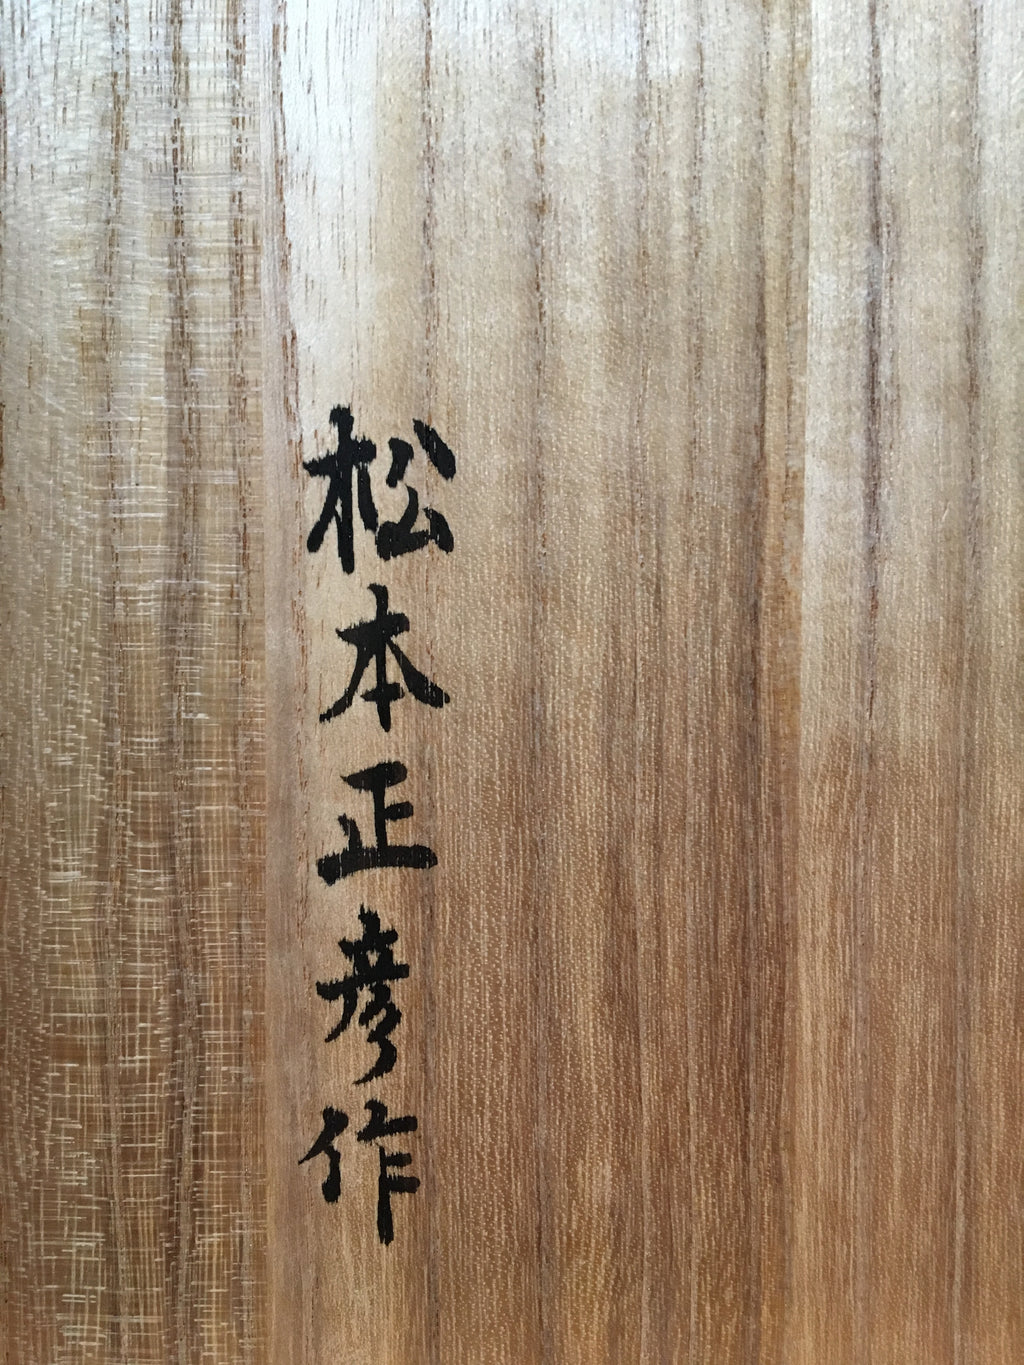 松本正彦作